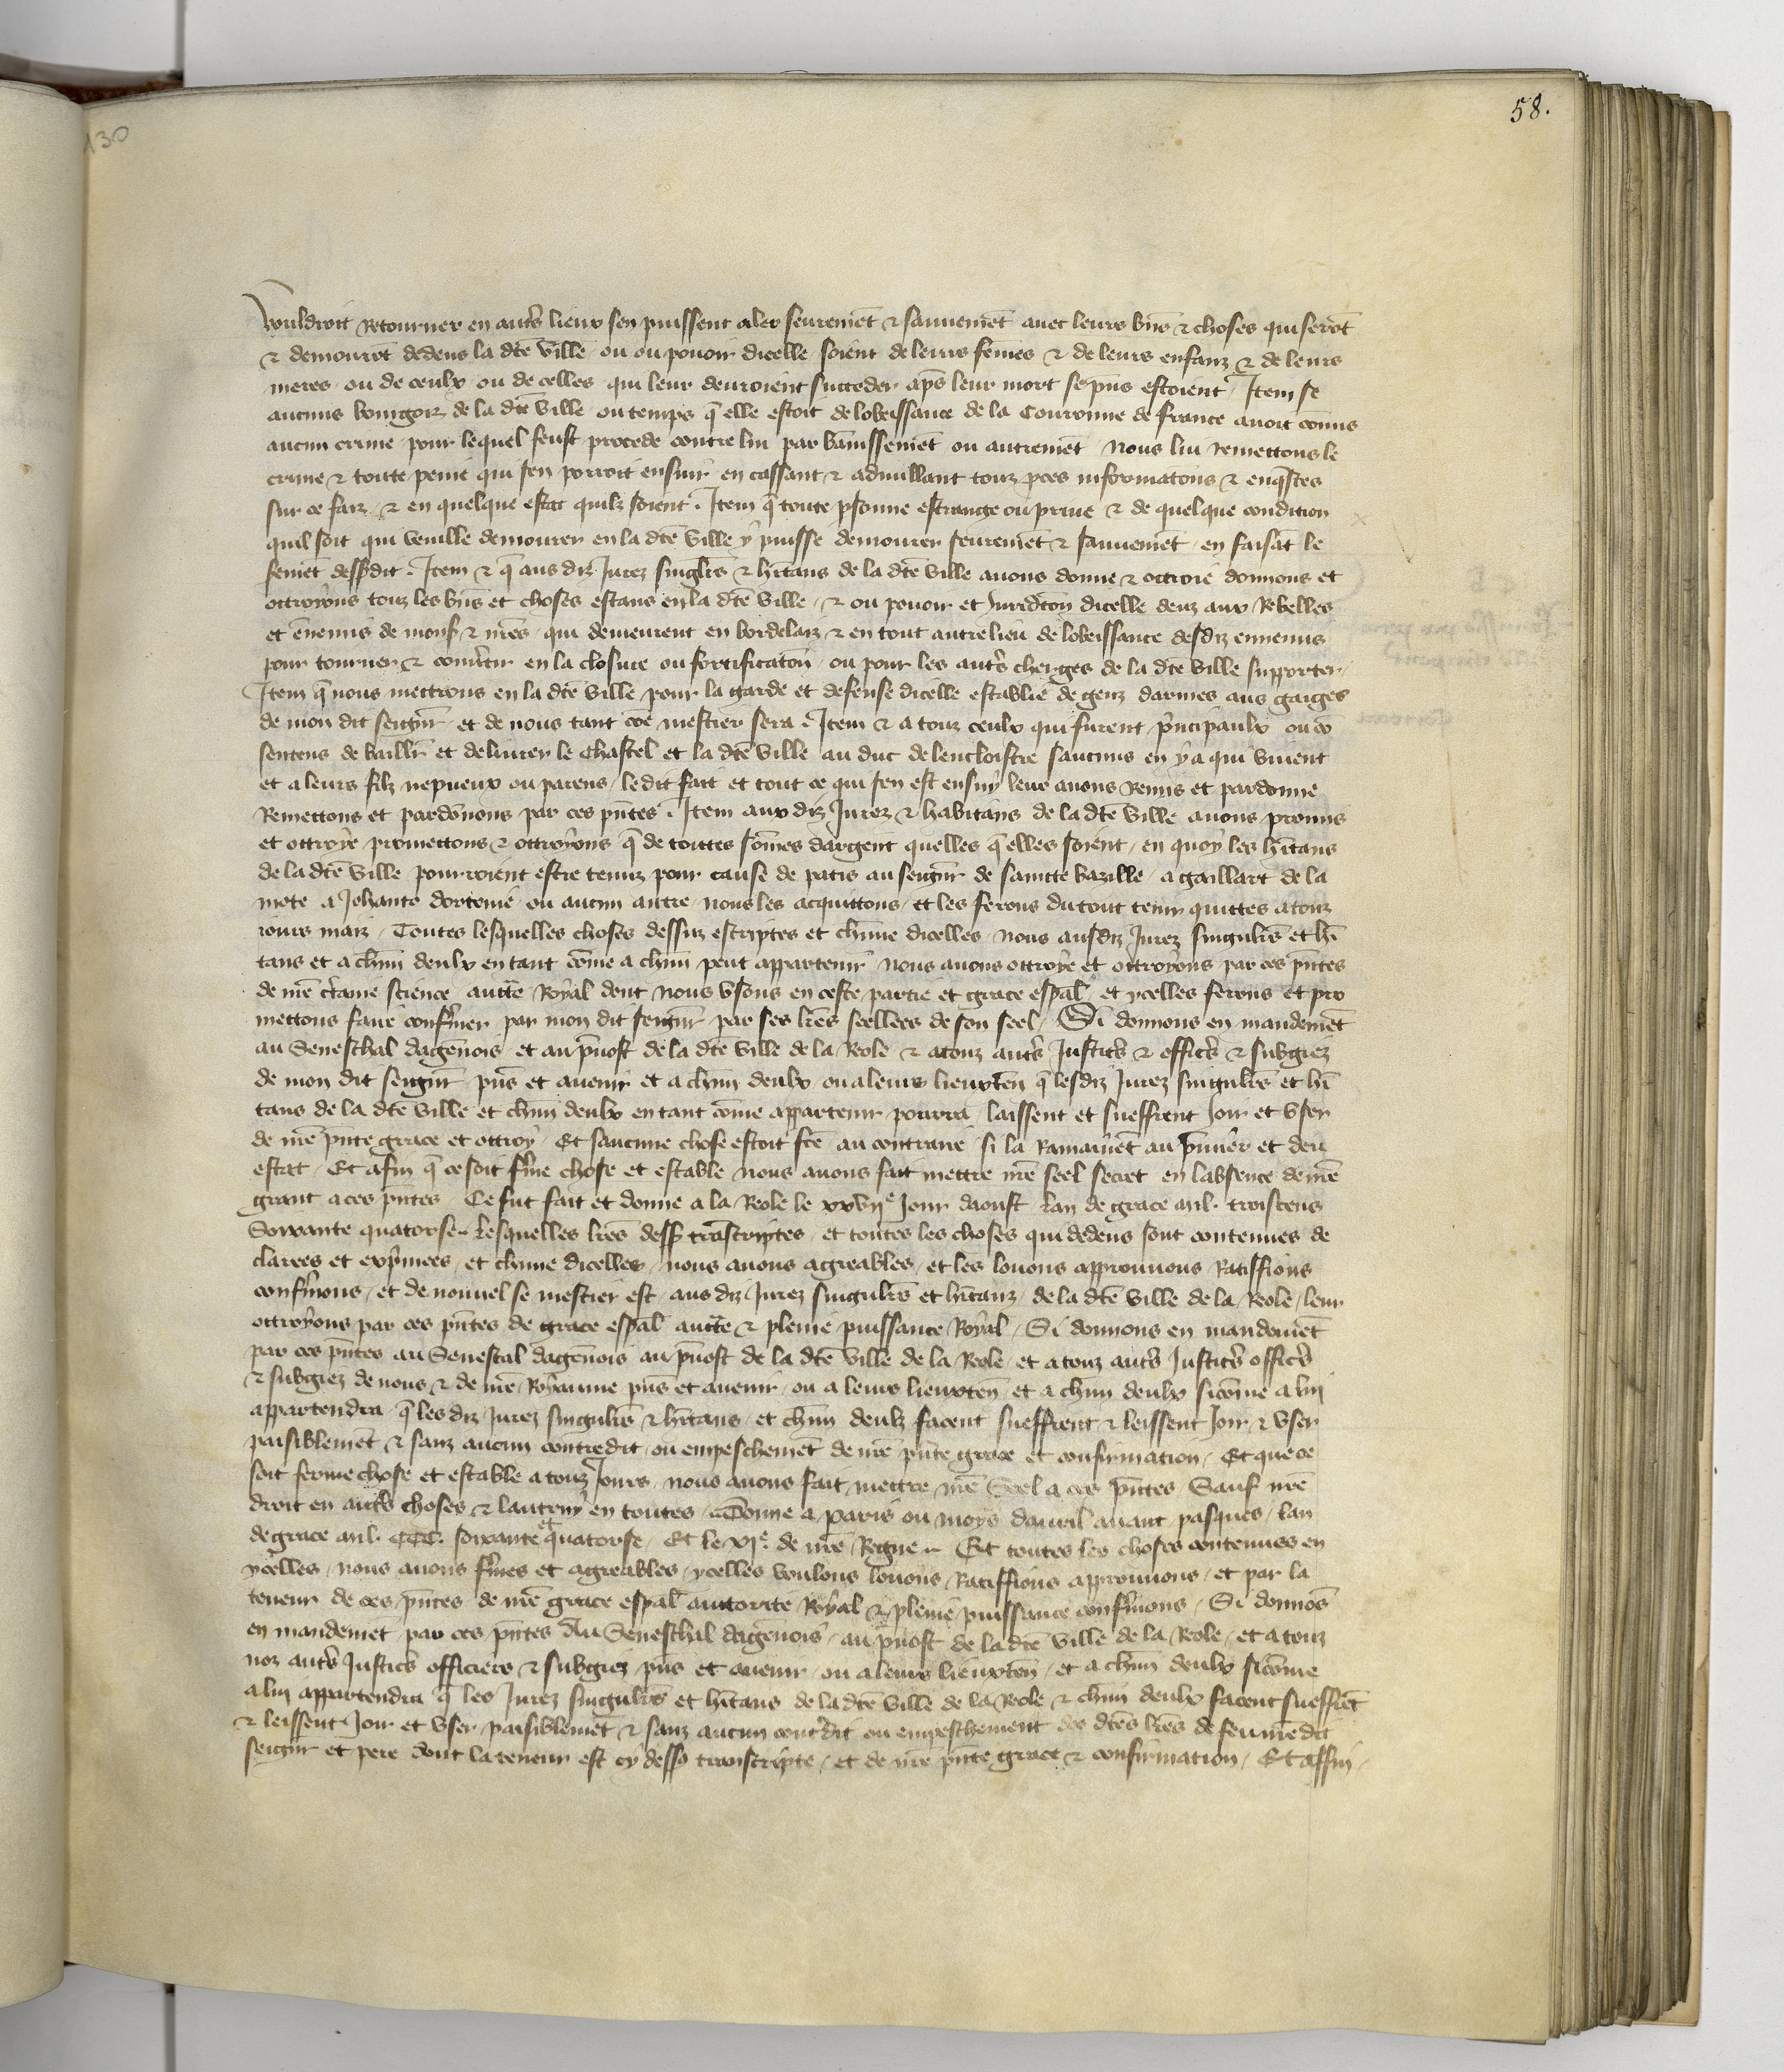 58.
130
vouldroit retourner en autrs lieux sen puissent aler seuremēt & sauuemēt auec leurs bns & choses qui serōt
& demourōt dedens la dte ville ou ou pouoir dicelle soient de leurs femes & de leurs enfanz & de leurs
meres ou de ceulx ou de celles qui leur deuroient succeder aps leur mort se pns estoient / Item se
aucuns bourgois de la dte ville ou temps q̄ elle estoit de lobeissance de la Couronne de france auoit cōmis
aucun crime pour lequel feust procede contre lui par bānissemēt ou autremēt Nous lui remettons le
crime & toute peine qui sen porroit ensuir en cassant & adnullant touz pces informatōns & enq̄stes
sur ce faiz & en quelque estat quilz soient . Item q̄ toute psonne estrange ou priue & de quelque condition
quil soit qui veuille demourer en la dte ville y puisse demourer seuremēt & sauuemēt en faisāt le
semēt dessdit . Item & q̄ aus diz Jurez singlrs & hītans de la dte ville auons donne & ottroie donnons et
ottroyons touz les bns et choses estans en la dte ville & ou pouoir et Juridcōn dicelle deuz aux Rebelles
et ēnemis de monsr & nres qui demeurent en bordelaiz & en tout autre lieu de lobeissance desdiz ennemis
pour tourner & conutir en la closure ou fortificatōn ou pour les autrs cherges de la dte ville supporter
Item q̄ nous mettrons en la dte ville pour la garde et defense dicelle establie de genz darmes aus gaiges
de mon dit seignr et de nous tant cōe mestier sera . Item & a touz ceulx qui furent pncipaulx ou cō
sentens de baillr et deliurer le Chastel et la dte ville au duc de lencloistre saucuns en y a qui viuent
et a leurs filz nepueux ou parens le dit fait et tout ce qui sen est ensuy leur auons Remis et pardonne
Remettons et pardōnons par ces pntes . Item aux diz Jurez & habitans de la dte ville auons promis
et ottroye promettons & ottroyons q̄ de toutes sōmes dargent quelles q̄ elles soient en quoy les hītans
de la dte ville pourroient estre tenuz pour cause de patis au seignr de saincte bazille a gaillart de la
mote a Jehante dortenie ou aucun autre nous les acquittons et les ferons du tout tenir quittes a touz
iours maiz . Toutes lesquelles choses dessuz escriptes et chūne dicelles nous ausdiz Jurez singulrs et hī
tans et a chūn deulx en tant cōme a chūn peut appartenir nous auons ottroye et ottroyons par ces pntes
de nre ctaine science auctte Royal dont nous vsons en ceste partie et grace espal et ycelles ferons et pro
mettons faire confmer par mon dit seignr par ses lres seellees de son seel / Si donnons en mandemēt
au Seneschal dagēnois et au puost de la dte ville de la Reole & a touz autrs Justicrs & officrs & subgiez
de mon dit seignr pns et auenir et a chūn deulx ou a leurs lieuxten q̄ lesdiz Jurez singulrs et hī
tans de la dte ville et chūn deulx en tant cōme appartenir pourra laissent et sueffrent Joir et vser
de nre pnte grace et ottroy Et saucune chose estoit fce au contraire si la Ramainēt au pmier et deu
estat / Et afin q̄ ce soit fme chose et estable nous auons fait mettre nre seel secret en labsence de nre
grant a ces pntes Ce fut fait et donne a la Reole le xxvije Jour daoust lan de grace mil . troiscens
Soixante quatorse Lesquelles lres dess trāscriptes et toutes les choses qui dedens sont contenues de
clarees et expmees et chūne dicelles nous auons agreables et les louons approuuons Ratiffions
confmons et de nouuel se mestier est aus diz Jurez singulrs et hītanz de la dte ville de la Reole leur
ottroyons par ces pntes de grace espal auctte & pleine puissance Royal . Si donnons en mandemēt
par ces pntes au Senescal dagēnois au puost de la dte ville de la Reole et a touz autrs Justicrs officrs
& subgiez de nous & de nre Royaume pns et auenir ou a leurs lieuxten et a chūn deulx sicōme a luy
appartendra q̄ les diz Jurez singulrs & hītans et chūn deulx facent sueffrent & leissent Joir & vser
paisiblemēt & sanz aucun contredit ou empeschemēt de nre pnte grace et confirmation / Et que ce
soit ferme chose et estable a touz Jours nous auons fait mettre nre Seel a ces pntes Sauf nre
droit en autrs choses & lautruy en toutes . Donne a paris ou moys dauril auant pasques lan
de grace mil . CCC . soixante et quatorse Et le xje de nre Regne . Et toutes les choses contenues en
ycelles nous auons fmes et agreables ycelles voulons louons Ratiffions approuuons et par la
teneur de ces pntes de nre grace espal autorite Royal & pleine puissance confmons . Si donnōs
en mandemēt par ces pntes Au Seneschal dagenois au puost de la dte ville de la Reole et a touz
noz autrs Justicrs officiers & subgiez pns et auenir ou a leurs lieuxten et a chūn deulx sicōme
a luy appartendra q̄ les Jurez singulrs et hītans de la dte ville de la Reole & chūn deulx facent sueffrēt
& leissent Joir et vser paisiblemēt & sanz aucun contdit ou empeschement des dtes lres de feu nre dit
seignr et pere dont la teneur est cy desss transcripte et de nre pnte grace & confirmation / Et affin